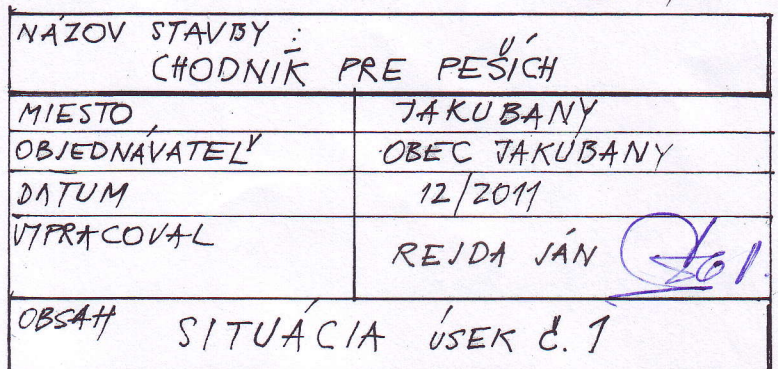 NÁZOV STAVBY :
CHODNÍK PRE PEŠÍCH
MIESTO JAKUBANY
OBJEDNÁVATEĽ OBEC JAKUBANY
DATUM 12/2011
VYPRACOVAL
REJDA JÁN
OBSAH SITUÁCIA ÚSEK Č. 1